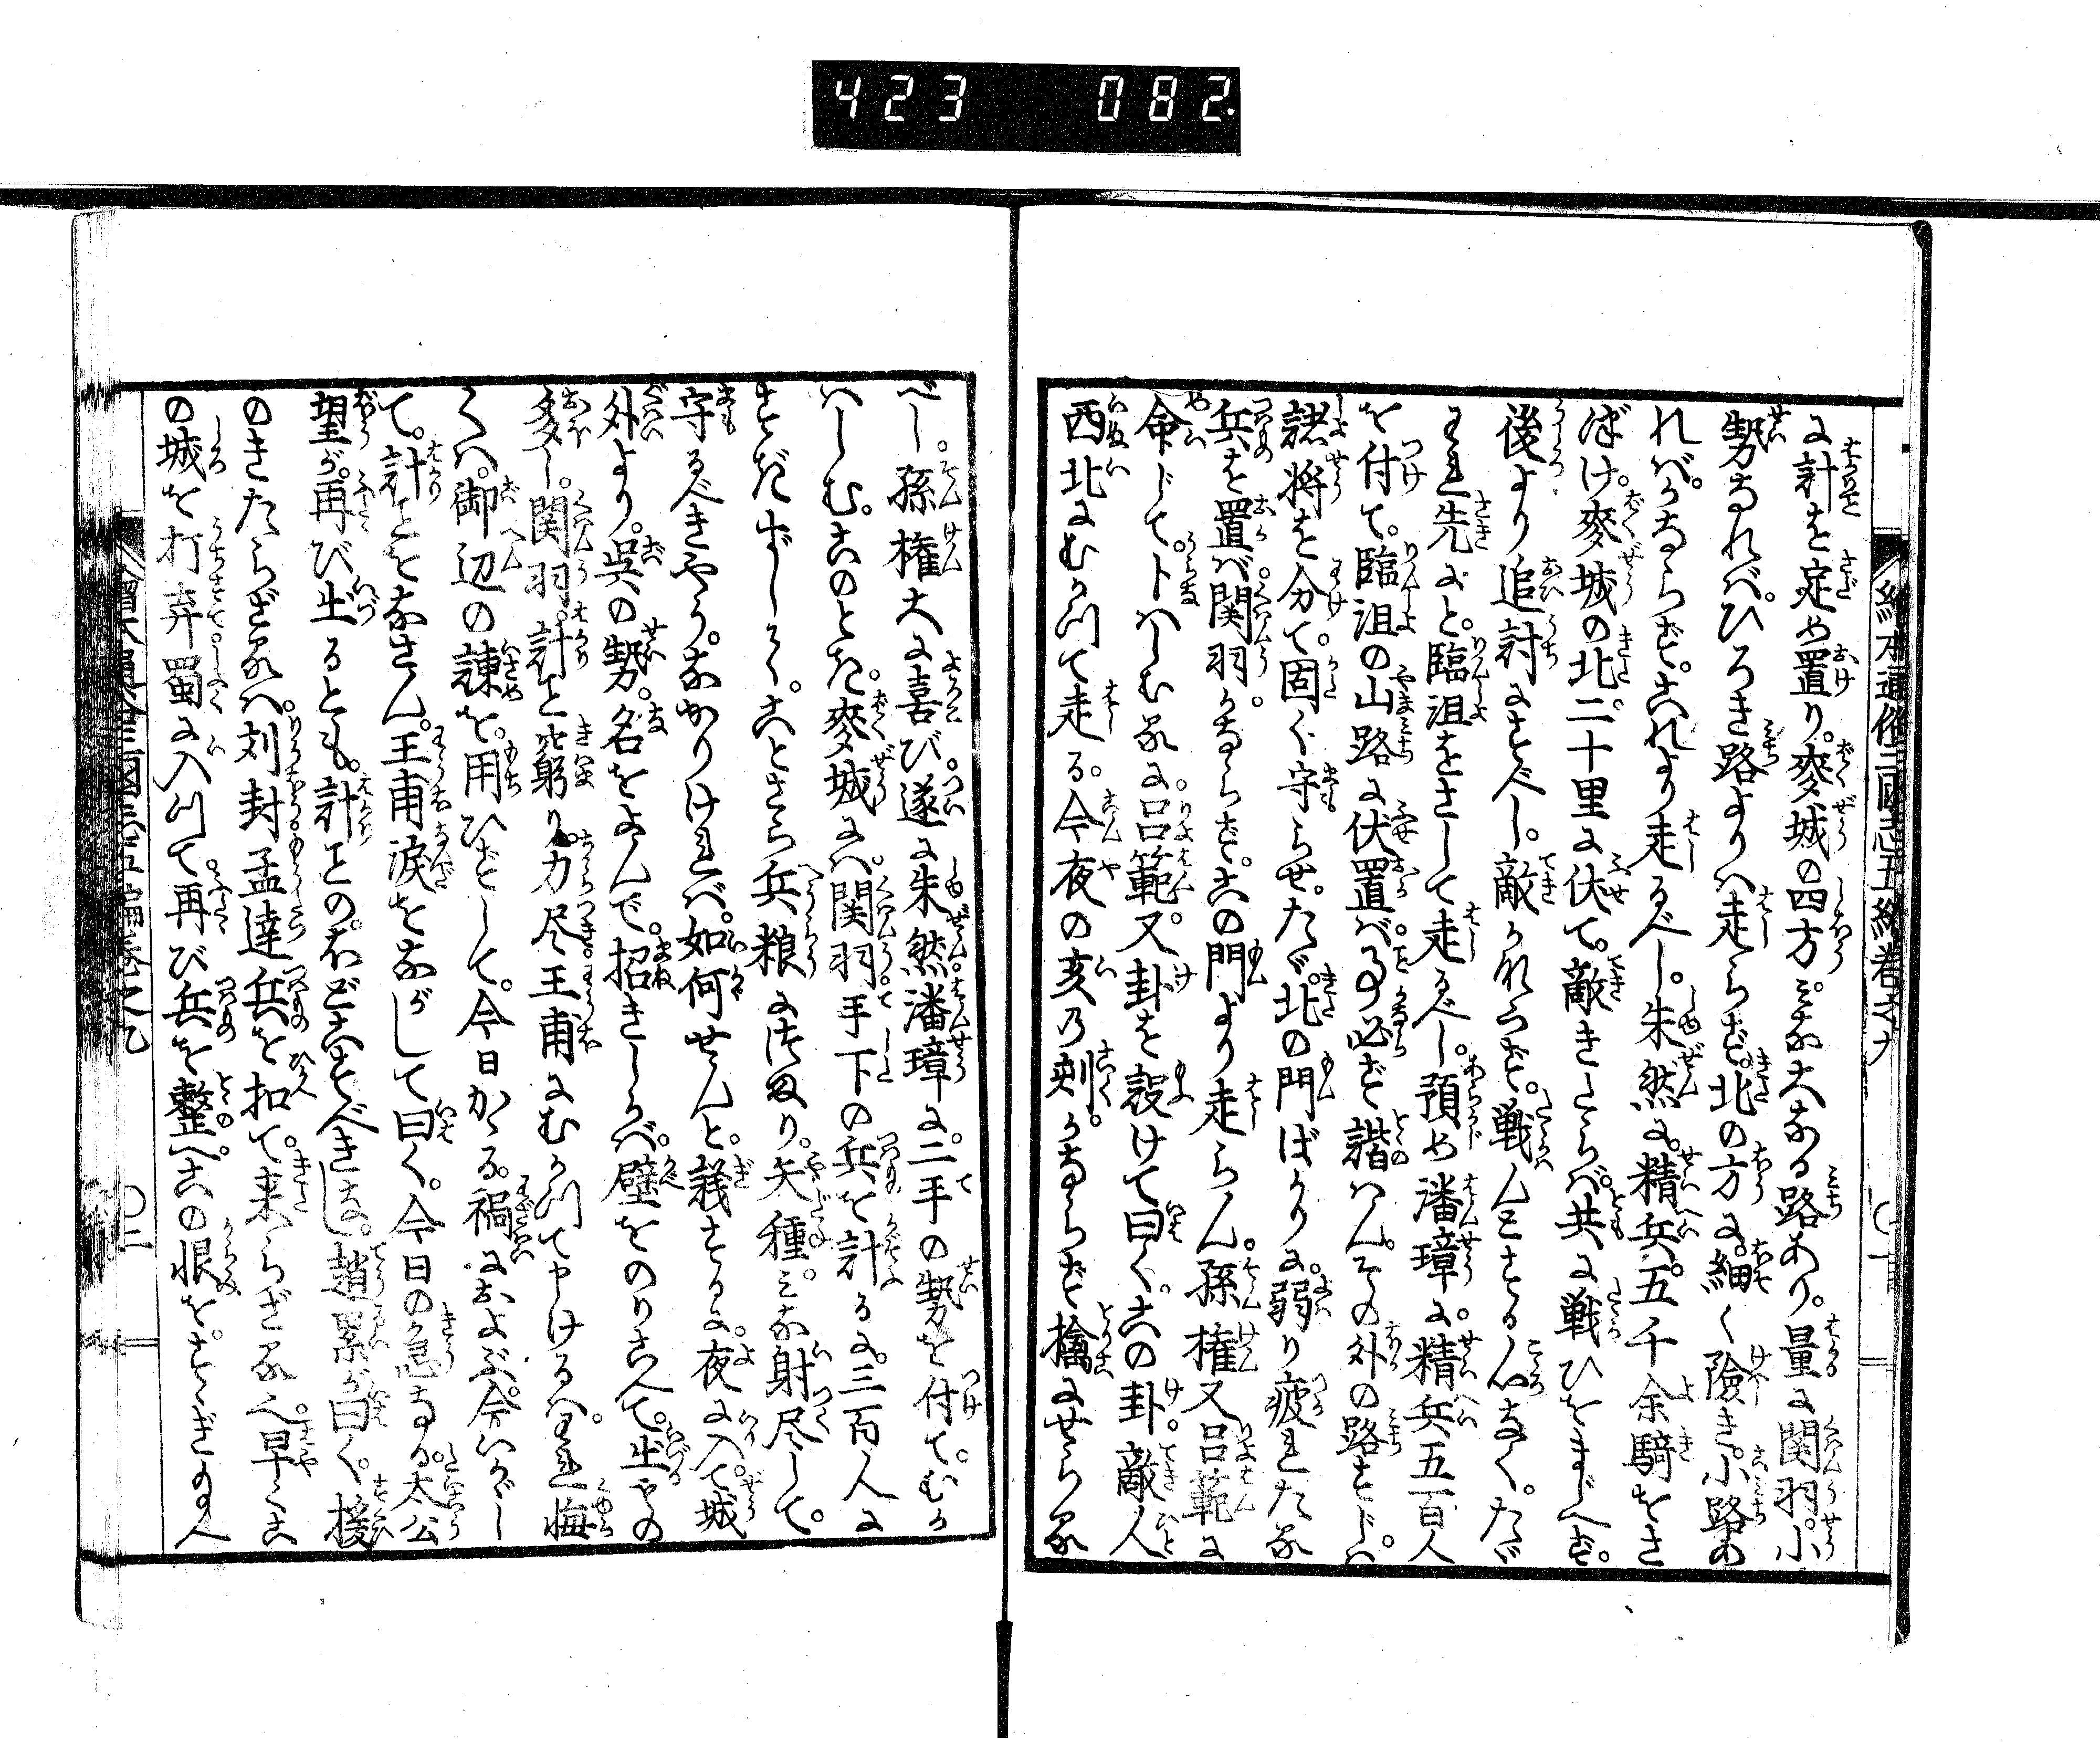 423 082
に計を定め置り。麥城の四方。みな大なる路あり。量に関羽。小
勢なれバ。ひろき路よりハ走らず。北の方に。細く險き。小路あ
れバ。かならず。これより走るべし。朱然に。精兵。五千余騎をさ
づけ。麥城の北。二十里に伏て。敵きたらバ。共に戦ひをまじへず。
後より追討にすべし。敵かれらず。戦んとする心なく。たゞ
まへ先にと。臨沮をさして走るべし。預め潘璋に。精兵五百人
を付て。臨沮の山路に伏置バ。事必ず諧ハん。その外の路をとぢ。
諸将を分て。固く守らせ。たゞ。北の門ばかりに。弱り疲れたる
兵を置バ。関羽。かならず。この門より走らん。孫権又呂範に
命じて。卜ハしむるに。呂範。又卦を設けて曰く。この卦。敵人
西北にむかつて走る。今夜の亥乃刻。かならず擒にせらる
べし。孫権大に喜び。遂に朱然潘璋に。二手の勢を付て。むか
ハしむ。このとき。麥城にハ。関羽。手下の兵を計るに。三百人に
すぎずしく。ことさら兵粮につまり。矢種。みな射尽して。
守るべきやう。なかりけれバ。如何せんと。議するに。夜に入て。城
外より。呉の勢。名をよんで。招きしかバ。壁をのりこへて。出るもの
多し。関羽。計こと窮り。力尽。王甫にむかつて申けるハ。われ悔
くハ。御辺の諫を。用ひずして。今日かゝる。禍におよぶ。今いかゞし
て。計ことをなさん。王甫涙をながして曰く。今日の急なる。太公
望が。再び出るとも。計ことの。ほどこすべきなし。趙累が曰く。援
のきたらざるハ。刘封孟達兵を扣て。来らざるへ。早くこ
の城を打弃蜀に入つて。再び兵を整へ。この恨を。すゝぎ給へ